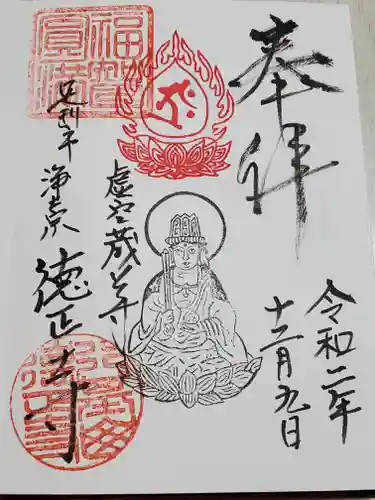 奉拝
令和二年
十二月九日
虚空蔵尊
足利市
浄宗
徳正寺
福智圓満